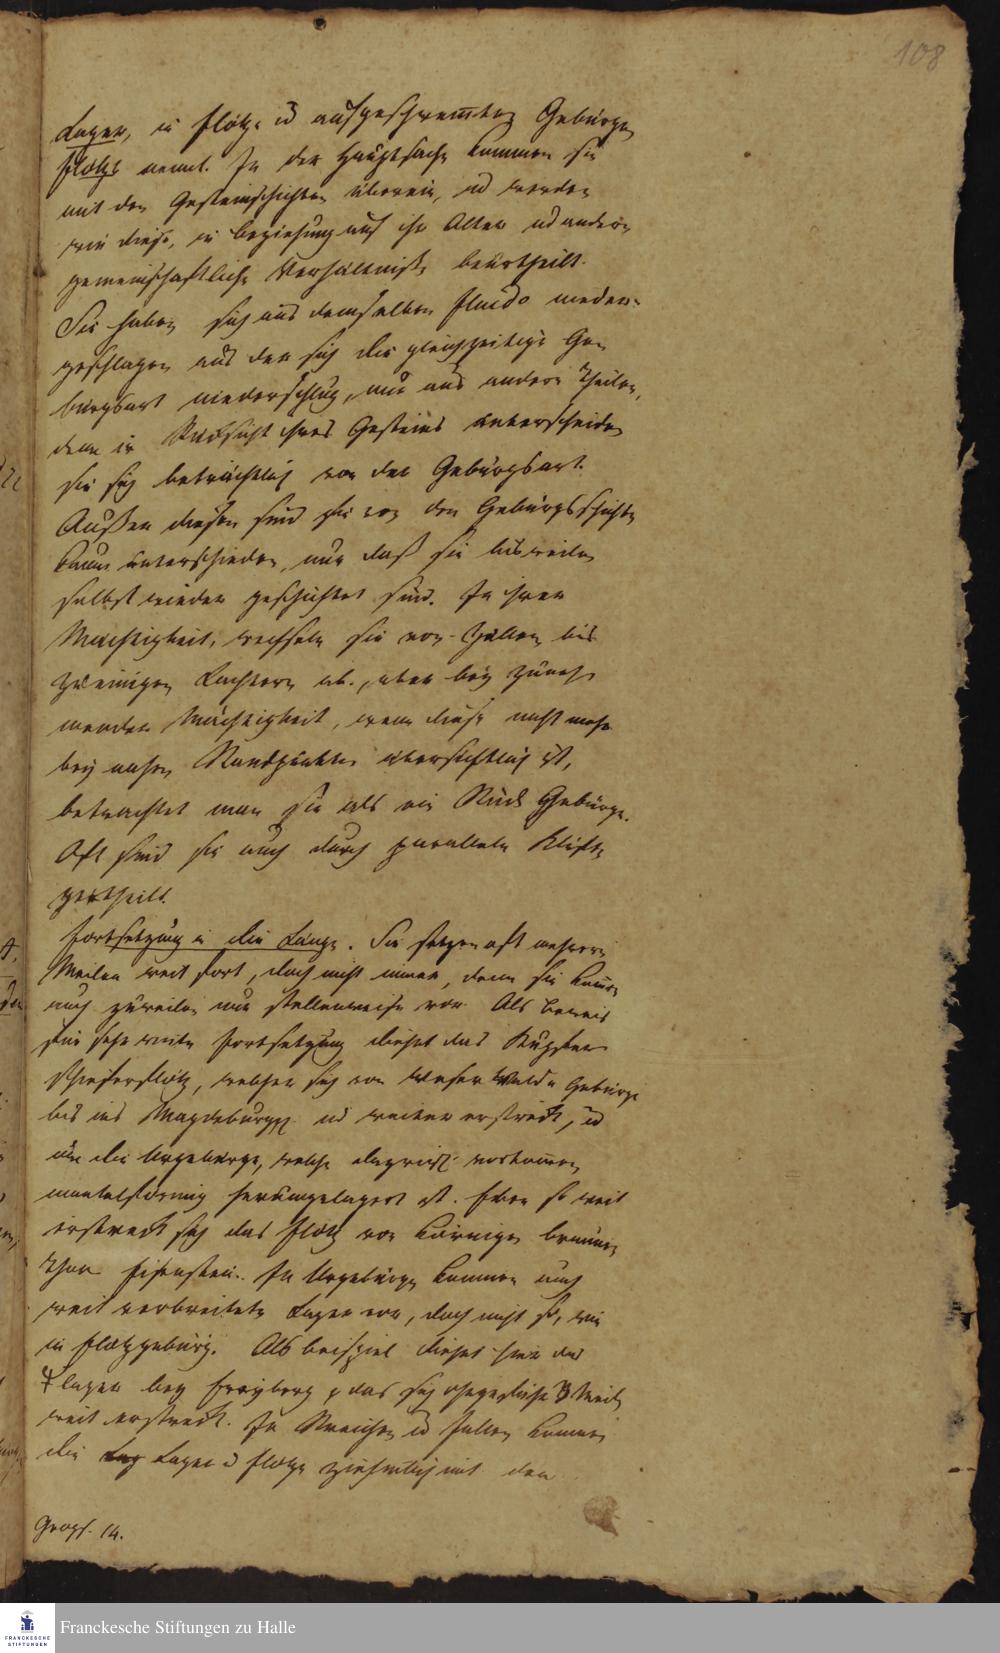 108
Lager, in Flötz- u aufgeschwemten Gebürgen
Flötze nennt. In der Hauptsache kommen sie
mit den Gesteinschichten überein, ud werden
wie diese, in beziehung auf ihr Alter ud andere
gemeinschaftliche Verhältniße beurtheilt.
Sie haben sich aus demselben Fluido nieder-
geschlagen aus der sich die gleichzeitige Ge-
bürgsart niederschlug, nur aus andern Theilen,
denn in Rücksicht ihres Gesteins unterscheiden
sie sich beträchtlich von der Gebürgsart.
Außer diesen sind sie von den Gebürgsschichten
kaum unterschieden, nur daß sie bisweilen
selbst wieder geschichtet sind. In ihrer
Mächtigkeit, wechseln sie von Zollen bis
zu einigen Lachtern ab., aber bey zuneh-
mender Mächtigkeit, wenn diese nicht mehr
bey nahen Standpunkten übersichtlich ist,
betrachtet man sie als ein Stück Gebürge.
Oft sind sie auch durch parallele Klüfte
zertheilt.
Fortsetzung in die Länge. Sie setzen oft mehrere
Meilen weit fort, doch nicht immer, denn sie kommen
auch zuweilen nur stellenweise vor. Als beweis
für sehr weite Fortsetzung dienet das Kupfer-
schieferflötz, welches sich vom Walde Gebürge
bis ins Magdeburg ud weiter erstreckt, ud
um die Urgebürge, welche vorkommen,
mantelförmig herumgelagert ist. Eben so weit
erstreckt sich das Flötz von körnigen braunen
Thon Eisenstein. In Urgebürgen kommen auch
weit verbreitete Lager vor, doch nicht so, wie
in Flötzgebürg. Als beispiel dienet hier das
lager bey Freyberg, das sich 3 Meilen
weit erstreckt. In Streichen ud Fallen kommen
die Lager u Flötze ziehmlich mit dem
Geogn. 14.
Franckesche Stiftungen zu Halle
FRANCKESCHE
STIFTUNGEN